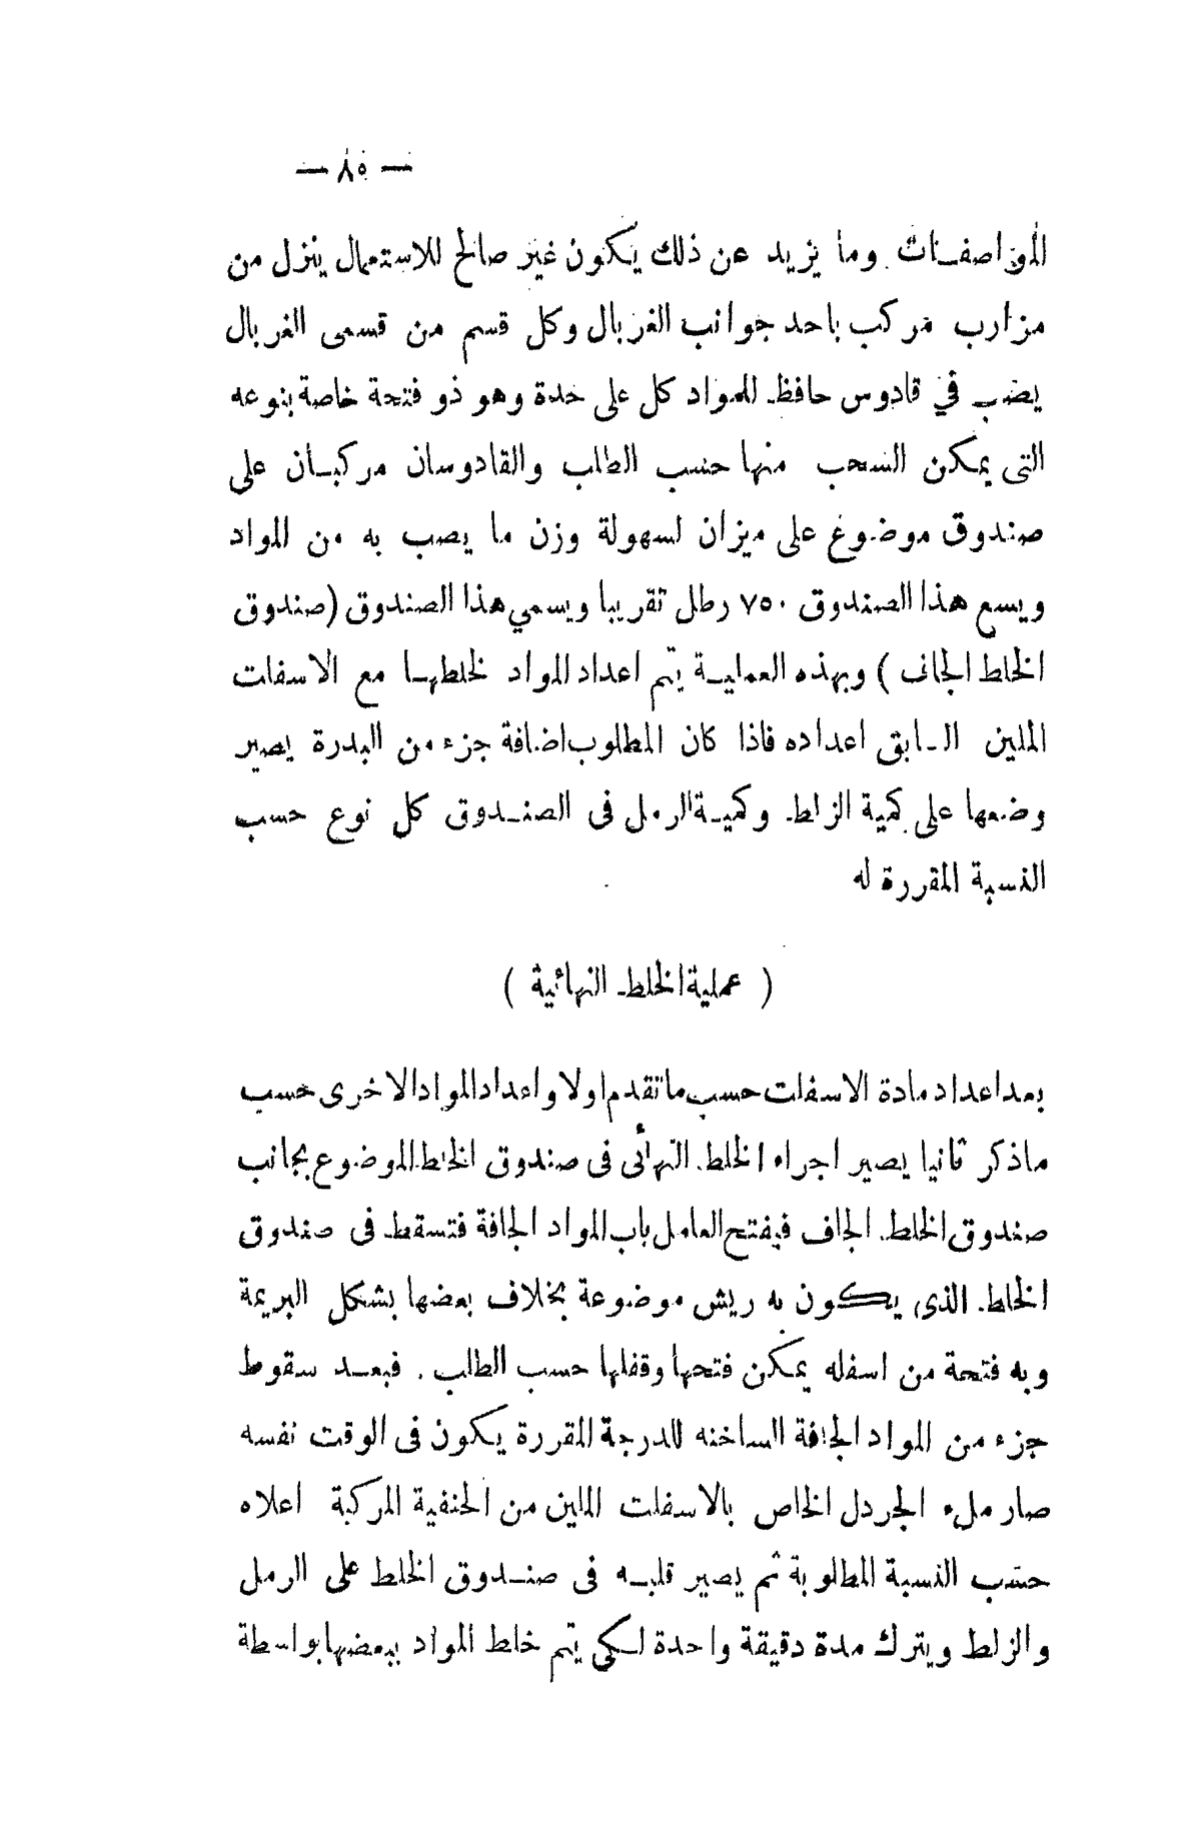 — ٨٥ —
المواصفات وما يزيد عن ذلك يكون غير صالح للاستعمال ينزل من
مزارب مركب باحد جوانب الغربال وكل قسم من قسمى الغربال
يصب في قادوس حافظ للمواد كل على حدة وهو ذو فتحة خاصة بنوعه
التى يمكن السحب منها حسب الطلب والقادوسان مركبان على
صندوق موضوع على ميزان لسهولة وزن ما يصب به من المواد
ويسع هذا الصندوق ٧٥٠ رطل تقريبا ويسمي هذا الصندوق (صندوق
الخلط الجاف ) وبهذه العملية يتم اعداد المواد لخلطها مع الاسفلت
الملين السابق اعداده فاذا كان المطلوب اضافة جزء من البدرة يصير
وضعها على كمية الزلط وكمية الرمل فى الصندوق كل نوع حسب
النسبة المقررة له
( عملية الخلط النهائية )
بعد اعداد مادة الاسفلت حسب ما تقدم اولا واعداد المواد الاخرى حسب
ماذكر ثانيا يصير اجراء الخلط النهائى فى صندوق الخلط الموضوع بجانب
صندوق الخلط الجاف فيفتح العامل باب المواد الجافة فتسقط فى صندوق
الخلط الذى يكون به ريش موضوعة بخلاف بعضها بشكل البريمة
وبه فتحة من اسفله يمكن فتحها وقفلها حسب الطلب . فبعد سقوط
جزء من المواد الجافة الساخنه للدرجة المقررة يكون فى الوقت نفسه
صار ملء الجردل الخاص بالاسفلت الملين من الحنفية المركبة اعلاه
حسب النسبة المطلوبة ثم يصير قلبه فى صندوق الخلط على الرمل
والزلط ويترك مدة دقيقة واحدة لكى يتم خلط المواد ببعضها بواسطة